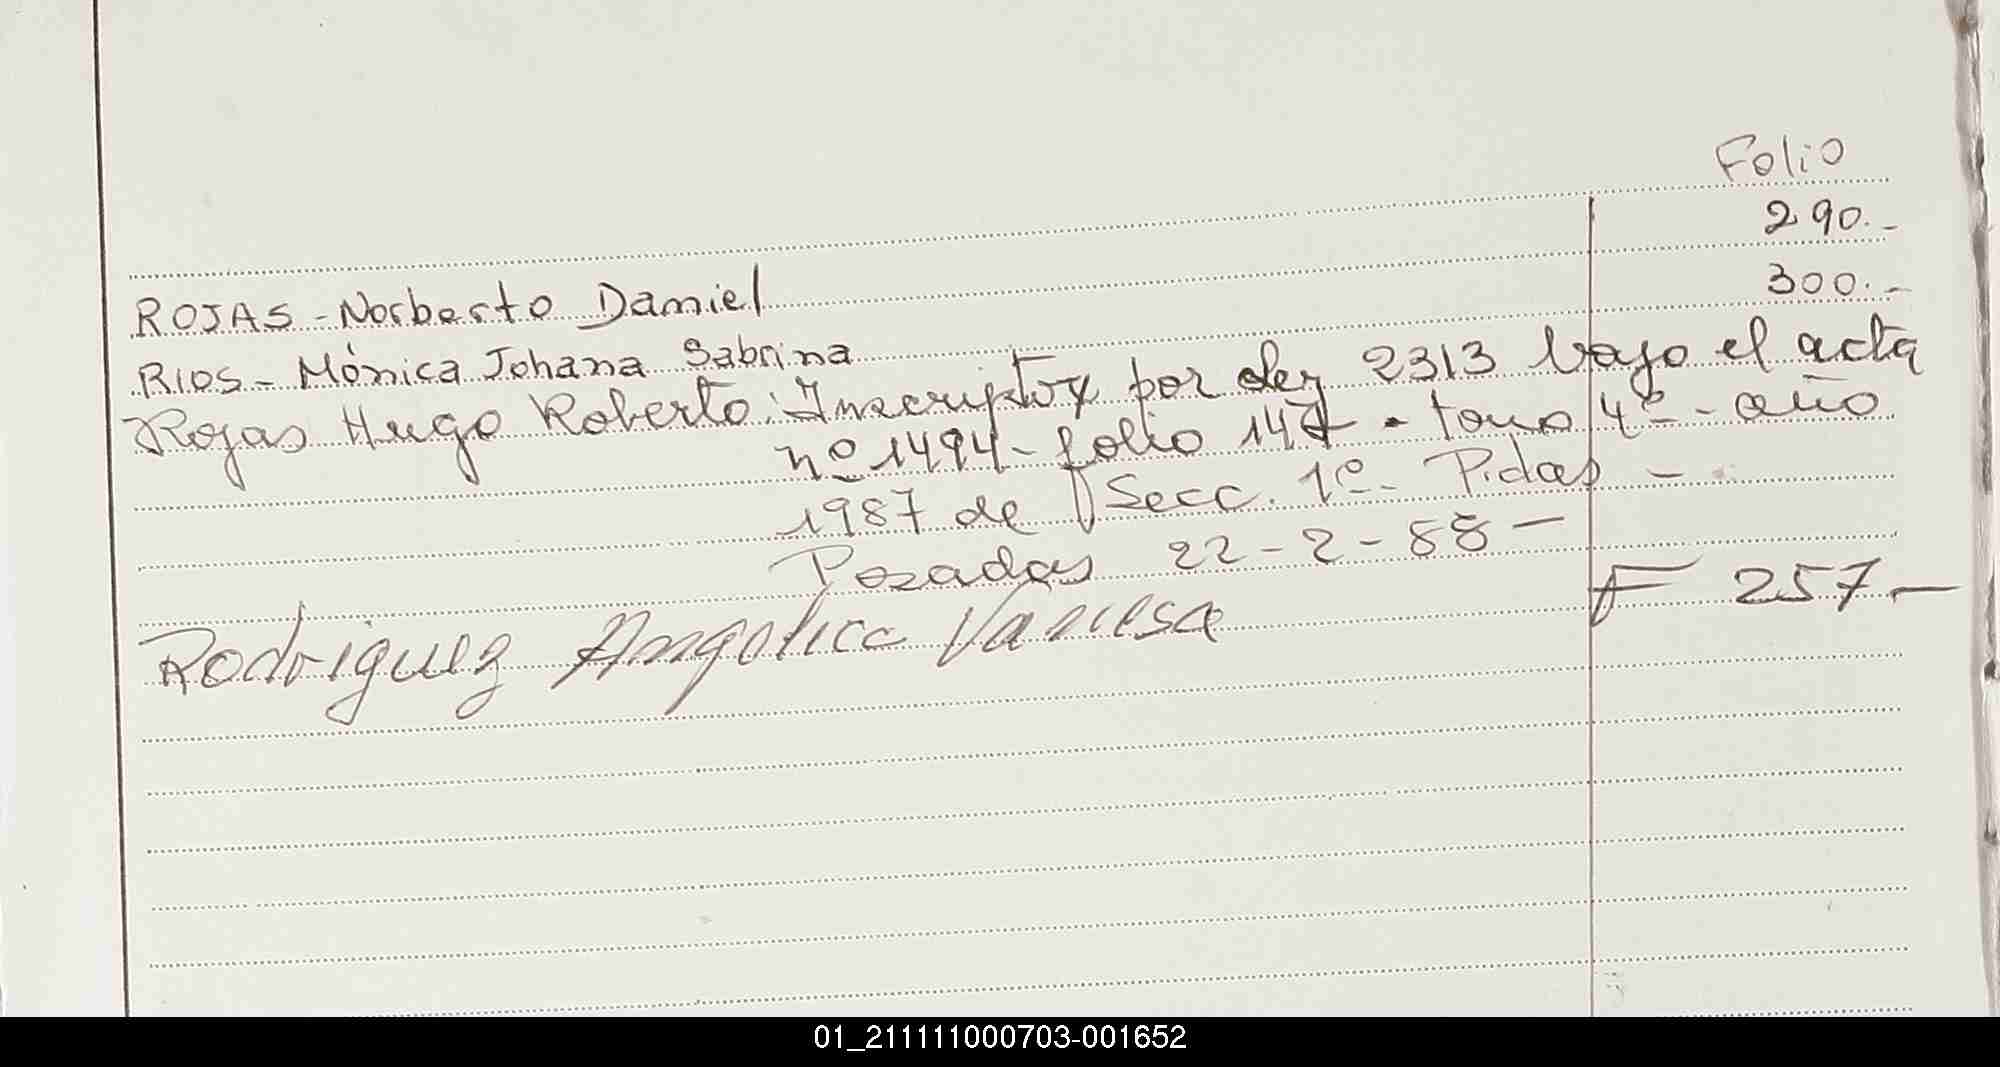 Folio
ROJAS - Norberto Daniel 290.-
RIOS - Mónica Johana Sabrina 300.-
Rojas Hugo Roberto: Inscripto por ley 2313 bajo el acta
nº 1494 - folio 147 - tomo 4º - año
1987 de Secc. 1º - Pidas -
Posadas 22-2-88 -
Rodriguez Angelica Vanesa F 257 -
01_211111000703-001652